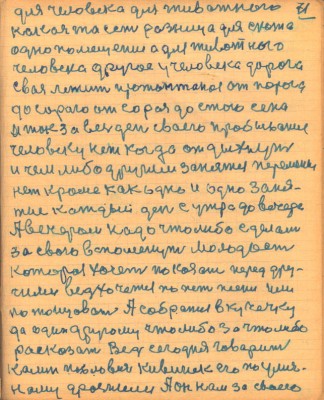 31
для человека для животного
какая та сеть разница для скота
одно помещение а для животного
человека другое у человека дорога
своя летит протоптаная от порога
до сарая от сарая до стого сена
и так за весь ден своего пребывание
человеку нет когда отдыхнуть
и чем либо другим занятся перемены
нет кроме как одно и одно заня-
тие каждый ден с утра до вечера
А вечером надо что либо сделат
за своего вспоменут молодост
которой хочет показат перед дру-
гими вед хочется попет песни или
потанцоват А собравшы в кучечку
да один другому что либо за что либо
расказат Вед сегодня говорит
Павлович его по умя-
ному дразнили А он нам за своего